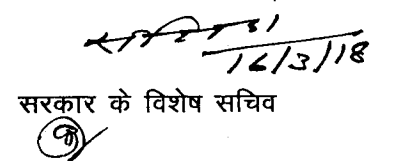 16/3/18
सरकार के विशेष सचिव